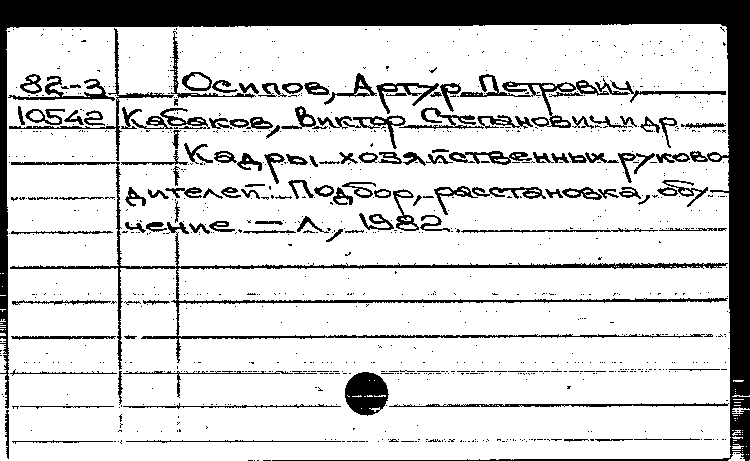 82-3 Осипов, Артур Петрович,
10542 Кабаков, Виктор Степанович и др
Кадры хозяйственных руково-
дителей: Подбор, расстановка, обу-
чение – Л., 1982